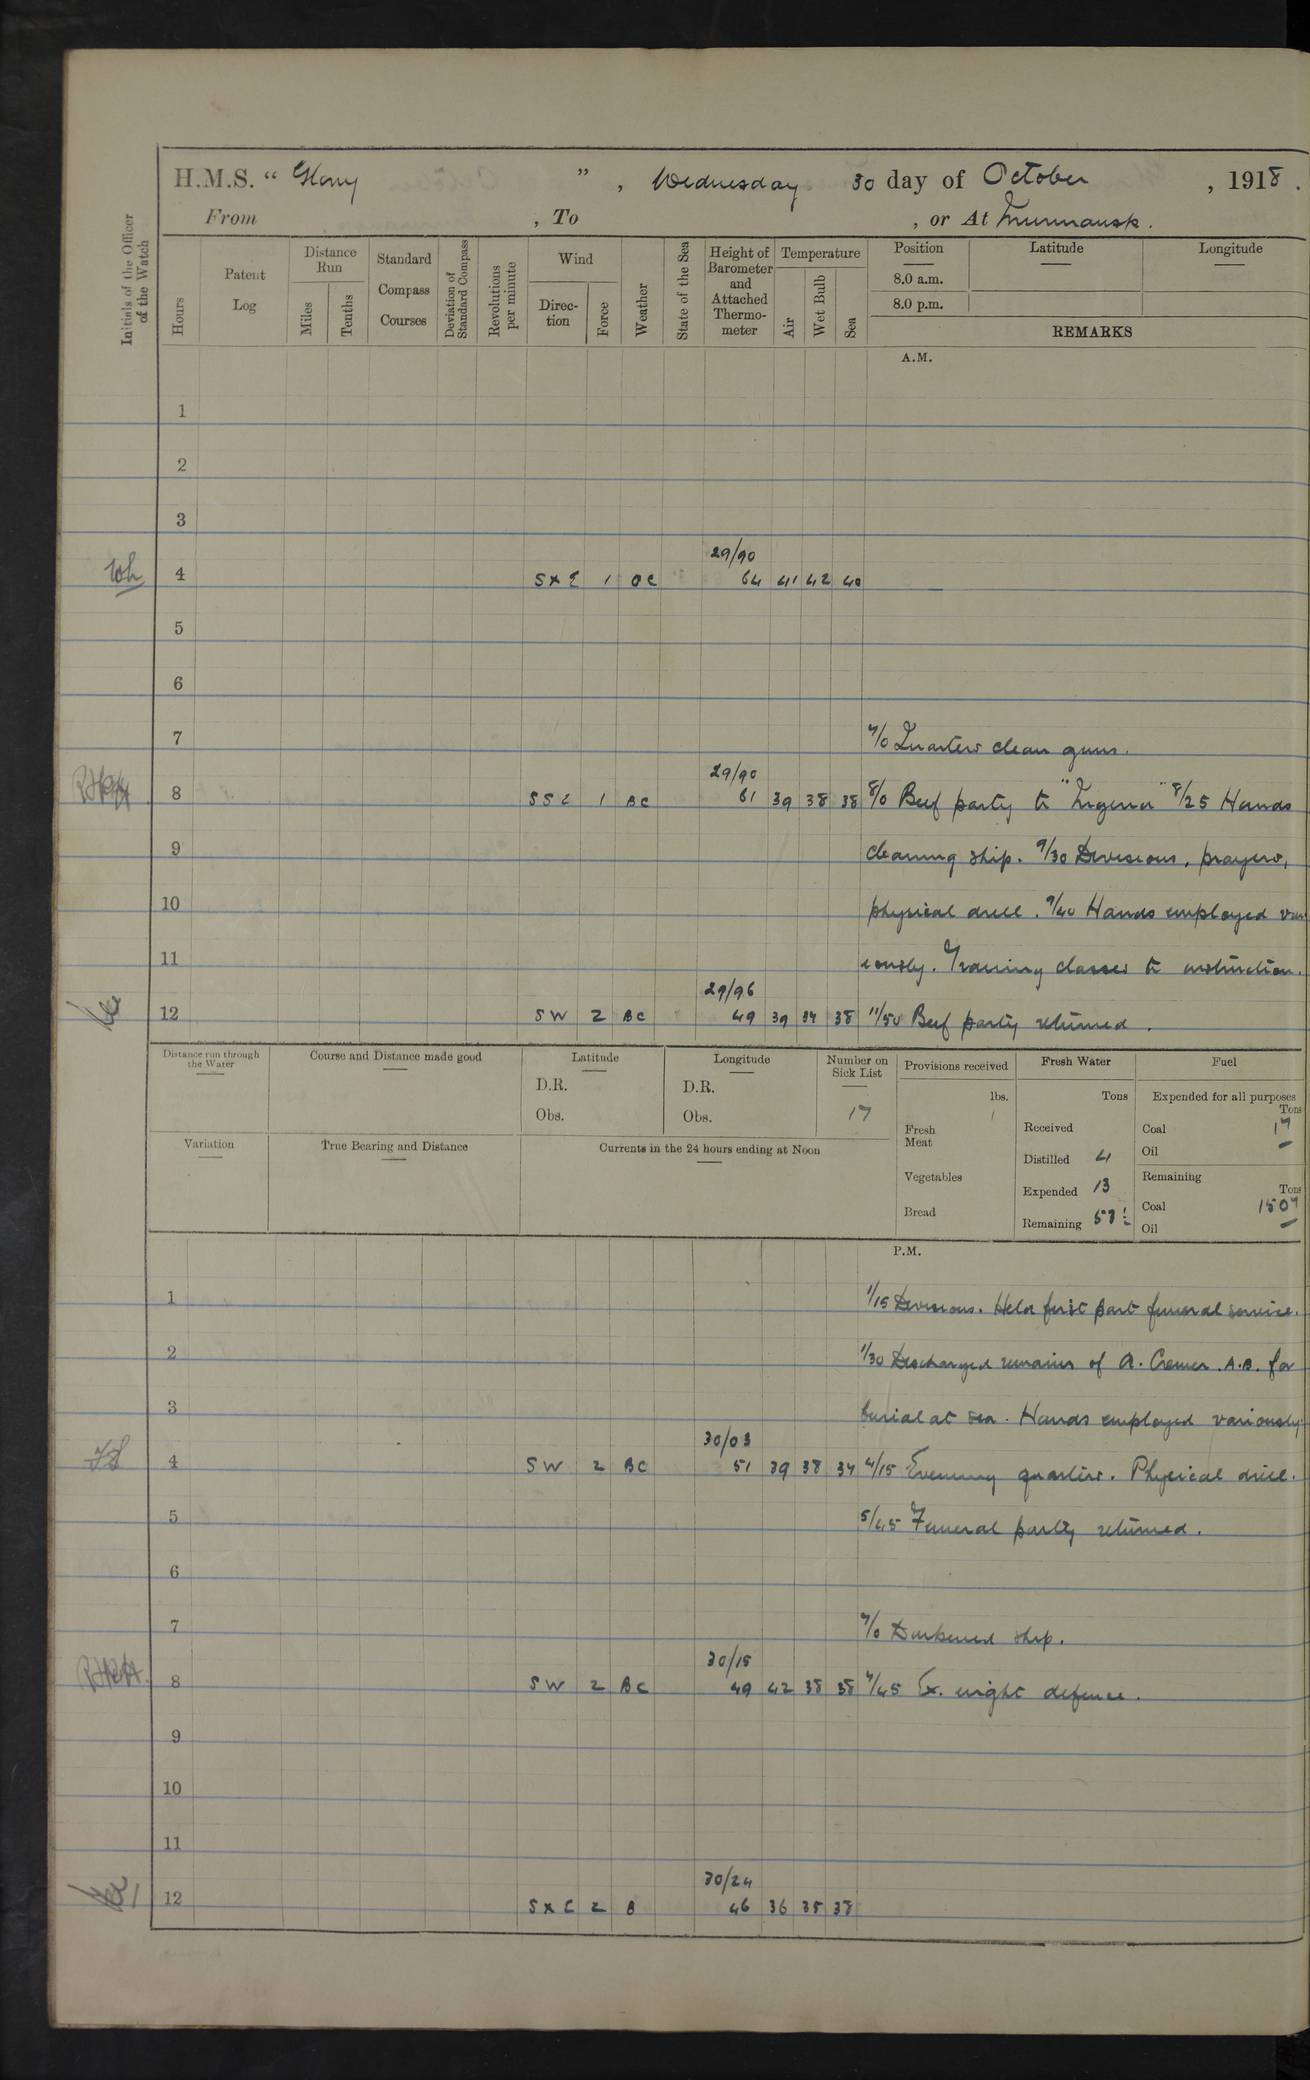 H.M.S. "Glory", Wednesday 30 day of October, 1918.
From , To , or At Murmansk.
Initials of the Officer of the Watch
Hours
Patent Log
Distance Run
Miles
Tenths
Standard Compass Courses
Deviation of Standard Compass
Revolutions per minute
Wind
Direc-tion
Force
Weather
State of the Sea
Height of Barometer and Attached Thermo-meter
Temperature
Air
Wet Bulb
Sea
Position
8.0 a.m.
8.0 p.m.
Latitude
Longitude
REMARKS
A.M.
1
2
3
29/90
4 S x E 1 OC 64 41 42 40
5
6
7 7/0 Quarters clean guns.
29/90
8 SSE 1 BC 61 39 38 38 8/0 Beef party to "Nigeria" 8/25 Hands
9 cleaning ship. 9/30 Divisions, prayers,
10 physical drill. 9/40 Hands employed var
11 iously. Training classes to instruction.
29/96
12 SW 2 BC 49 39 37 38 11/50 Beef party returned.
Distance run through the Water
Course and Distance made good
Latitude
D.R.
Obs.
Longitude
D.R.
Obs.
Number on Sick List
17
Provisions received
lbs.
Fresh Meat
Vegetables
Bread
Fresh Water
Tons
Received
Distilled 4
Expended 13
Remaining
Fuel
Expended for all purposes
Tons
Coal 17
Oil –
Remaining
Tons
Coal 1507
Oil –
Variation
True Bearing and Distance
Currents in the 24 hours ending at Noon
P.M.
1 1/15 Divisions. Held first part funeral service.
2 1/30 Discharged remains of A. Cremer A.B. for
3 burial at sea. Hands employed variously
30/03
4 SW 2 BC 51 39 38 37 4/15 Evening quarters. Physical drill.
5 5/45 Funeral party returned.
6
7 7/0 Darkened ship.
30/15
8 SW 2 BC 49 42 38 38 7/45 Ex. night defence.
9
10
11
30/24
12 S x E 2 B 46 36 35 38